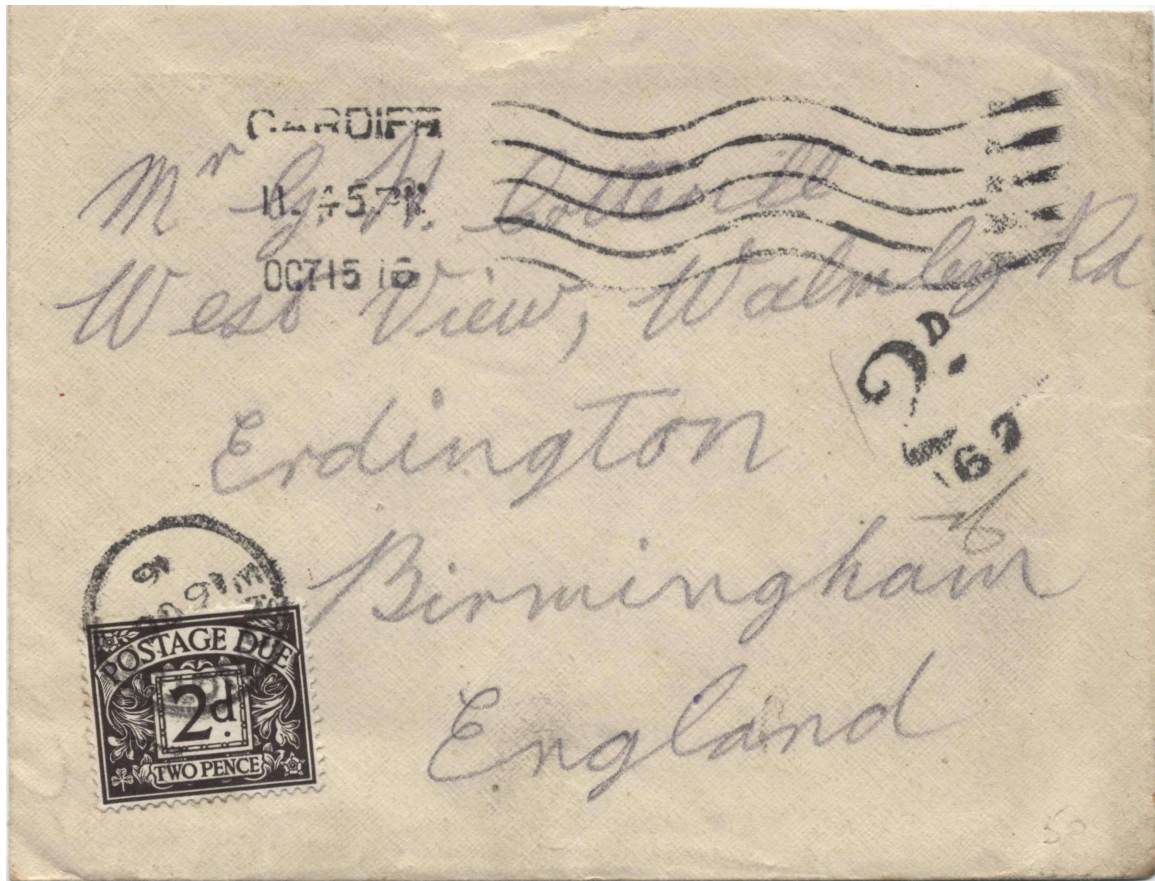 CARDIFF
11.45 PM
OCT 15 16
Mr G. H. Cotterill
West View, Walmley Rd
2D.
Erdington
Birmingham
England
16
POSTAGE DUE
2d.
TWO PENCE
50